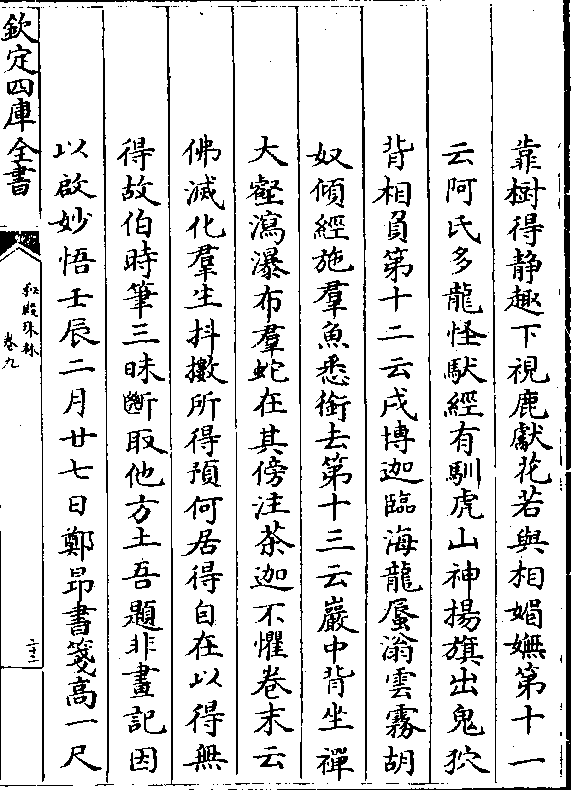 靠樹得静趣下視鹿獻花若與相媚嫵第十一
云阿氏多龍怪馱經有馴虎山神揚旗出鬼狖
背相負第十二云戌博迦臨海龍蜃滃雲霧胡
奴傾經施羣魚悉銜去第十三云巖中背坐禪
大壑瀉瀑布羣蛇在其傍注荼迦不懼卷末云
佛滅化羣生抖擻所得預何居得自在以得無
得故伯時筆三昧斷取他方土吾題非畫記因
以啟妙悟壬辰二月廿七日鄭昂書箋髙一尺
欽定四庫全書
秘殿珠林
卷九
二十二